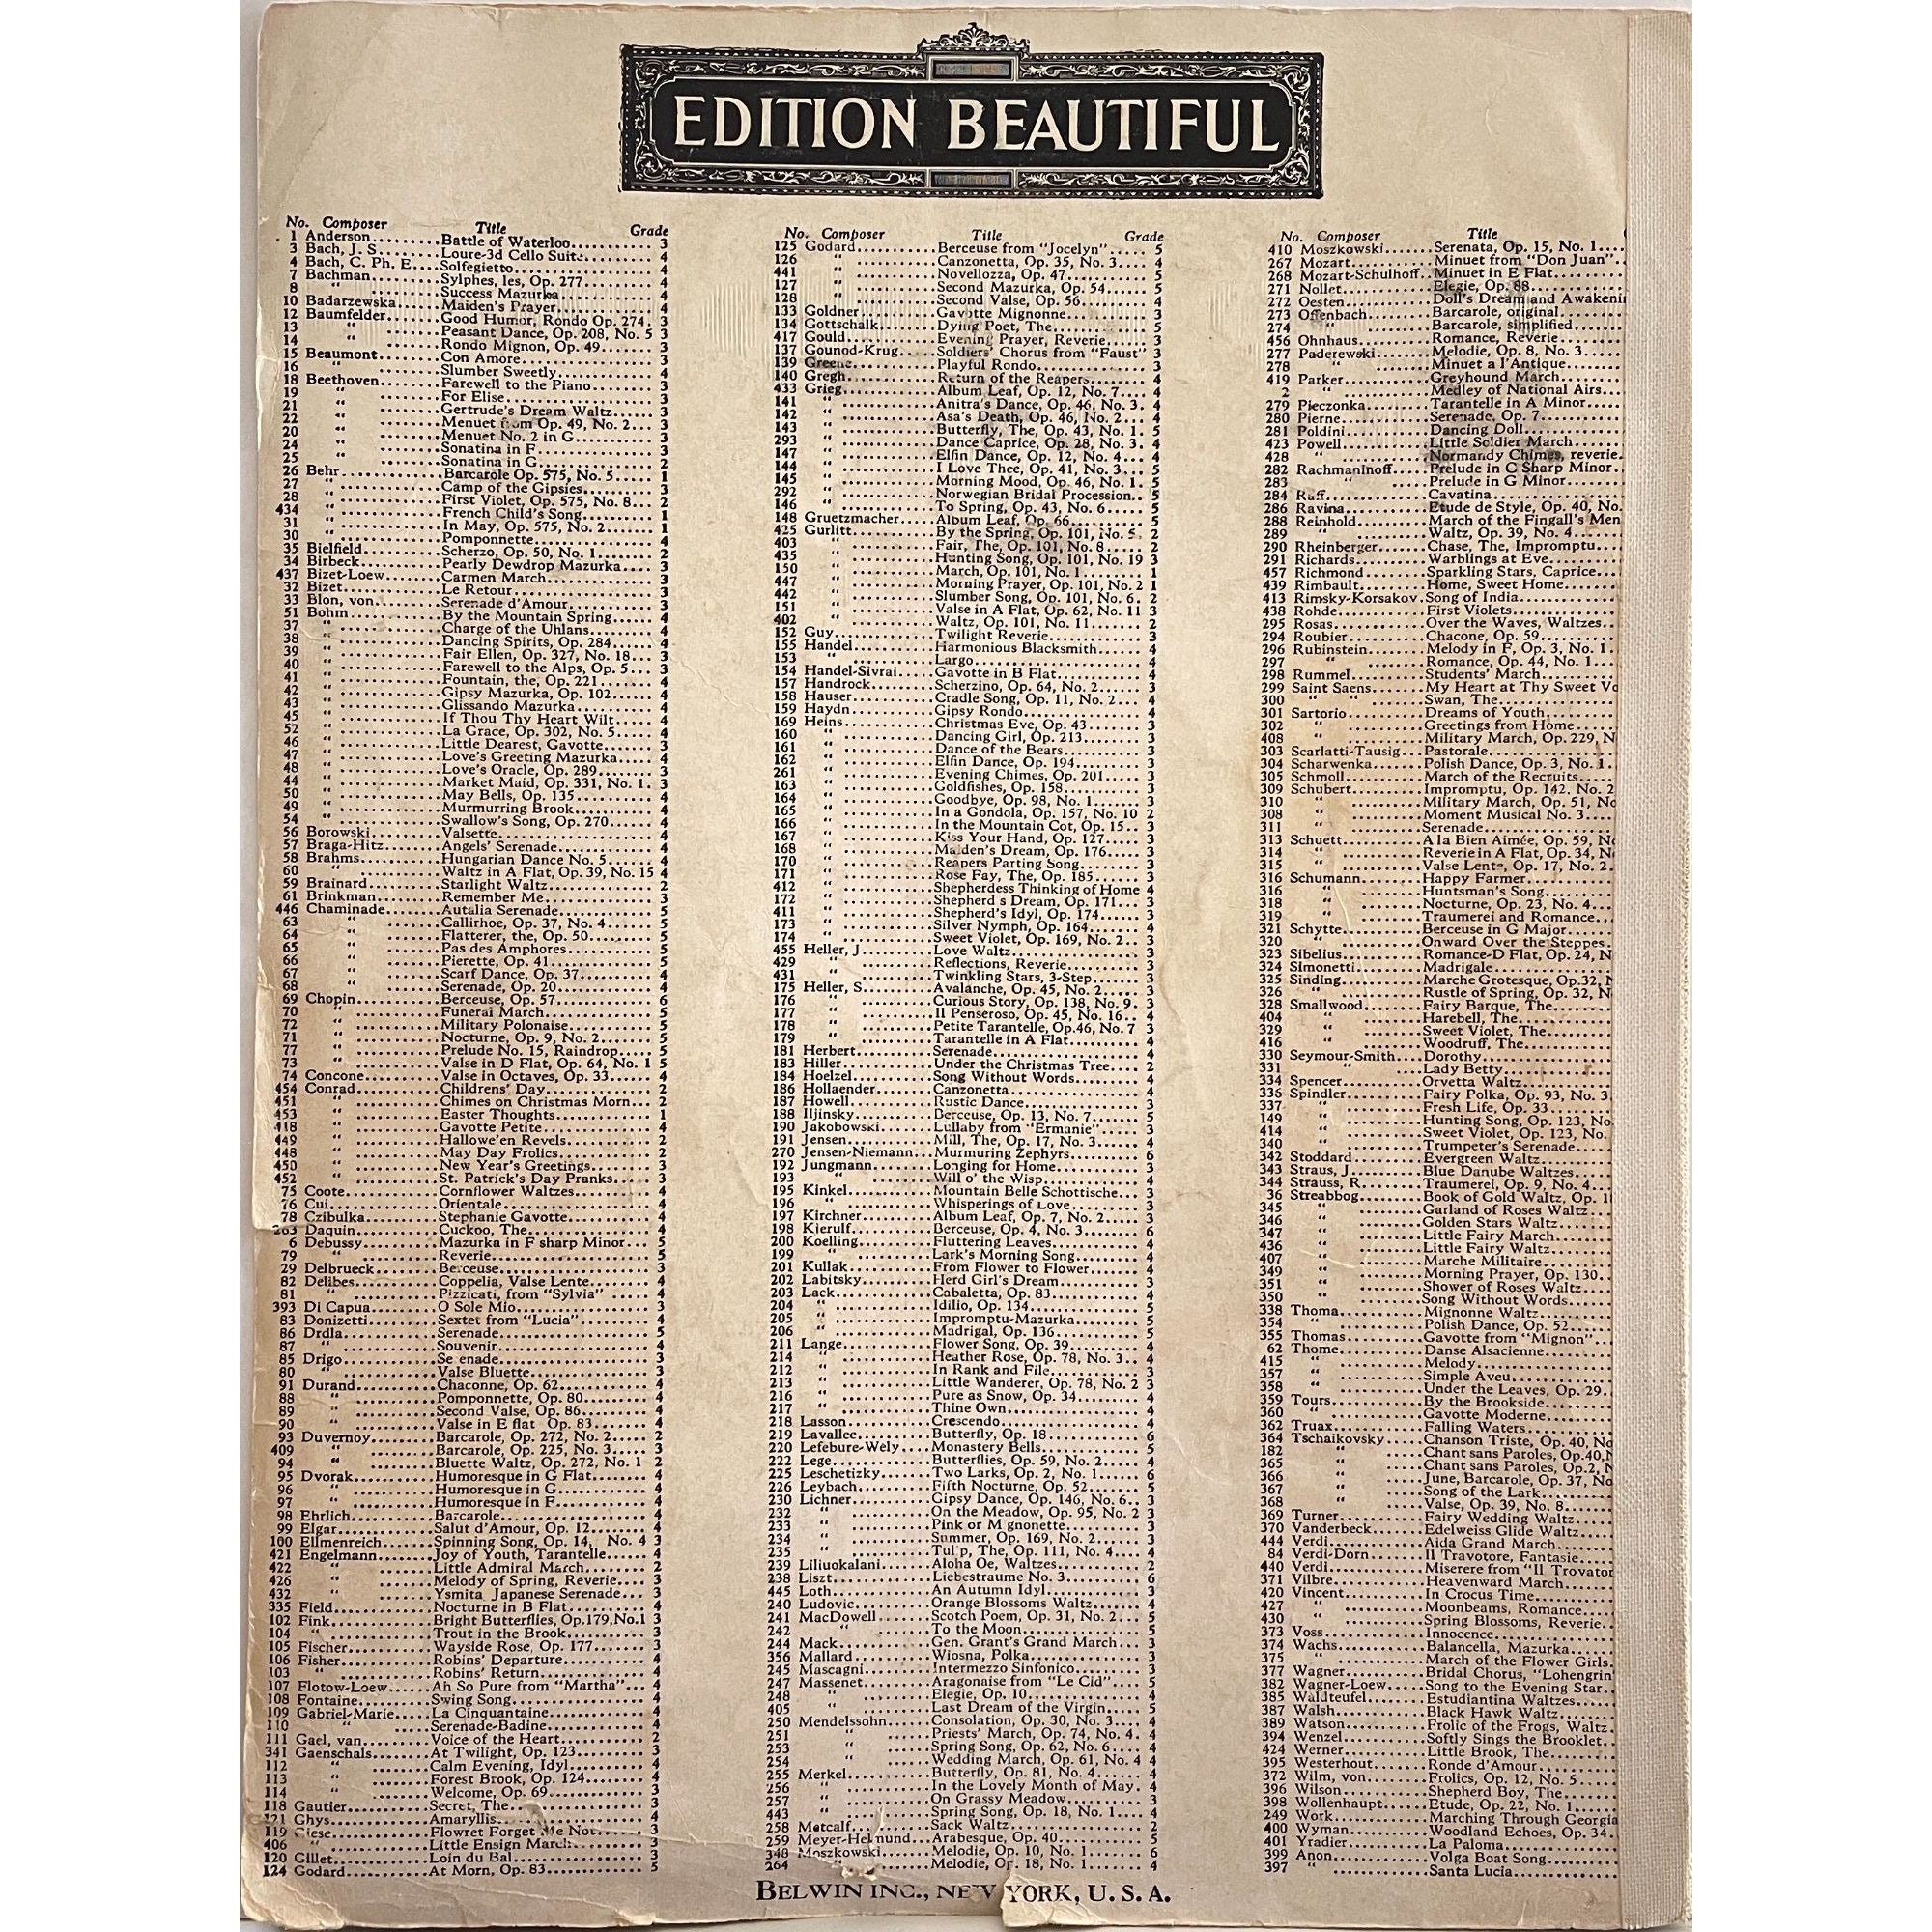 EDITION BEAUTIFUL
No. Composer Title Grade
1 Anderson.........Battle of Waterloo.......... 3
3 Bach, J. S........Loure-3d Cello Suite......... 4
4 Bach, C. Ph. E....Solfegietto................ 4
7 Bachman..........Sylphes, les, Op. 277........ 4
8 “ ..........Success Mazurka............ 4
10 Badarzewska......Maiden's Prayer............ 4
12 Baumfelder.......Good Humor, Rondo Op. 274. 3
13 “ .......Peasant Dance, Op. 208, No. 5 3
14 “ .......Rondo Mignon, Op. 49....... 3
15 Beaumont........Con Amore................ 3
16 “ ........Slumber Sweetly............ 4
18 Beethoven........Farewell to the Piano........ 3
19 “ ........For Elise.................. 3
21 “ ........Gertrude's Dream Waltz..... 3
22 “ ........Menuet from Op. 49, No. 2... 3
20 “ ........Menuet No. 2 in G.......... 3
24 “ ........Sonatina in F.............. 3
25 “ ........Sonatina in G.............. 2
26 Behr.............Barcarole Op. 575, No. 5..... 1
27 “ .............Camp of the Gipsies......... 3
28 “ .............First Violet, Op. 575, No. 8... 2
434 “ .............French Child's Song......... 1
31 “ .............In May, Op. 575, No. 2...... 1
30 “ .............Pomponnette............... 4
35 Bielfield..........Scherzo, Op. 50, No. 1....... 2
34 Birbeck..........Pearly Dewdrop Mazurka.... 3
437 Bizet-Loew.......Carmen March............. 3
32 Bizet............Le Retour................. 3
33 Blon, von........Serenade d'Amour........... 3
51 Bohm............By the Mountain Spring..... 4
37 “ ............Charge of the Uhlans........ 4
38 “ ............Dancing Spirits, Op. 284..... 4
39 “ ............Fair Ellen, Op. 327, No. 18... 3
40 “ ............Farewell to the Alps, Op. 5... 3
41 “ ............Fountain, the, Op. 221....... 4
42 “ ............Gipsy Mazurka, Op. 102..... 4
43 “ ............Glissando Mazurka.......... 4
45 “ ............If Thou Thy Heart Wilt..... 4
52 “ ............La Grace, Op. 302, No. 5..... 4
46 “ ............Little Dearest, Gavotte....... 3
47 “ ............Love's Greeting Mazurka.... 4
48 “ ............Love's Oracle, Op. 289....... 3
44 “ ............Market Maid, Op. 331, No. 1. 3
50 “ ............May Bells, Op. 135.......... 4
49 “ ............Murmurring Brook.......... 4
54 “ ............Swallow's Song, Op. 270..... 4
56 Borowski.........Valsette................... 4
57 Braga-Hitz.......Angels' Serenade............ 4
58 Brahms..........Hungarian Dance No. 5...... 4
60 “ ..........Waltz in A Flat, Op. 39, No. 15 4
59 Brainard.........Starlight Waltz............. 2
61 Brinkman........Remember Me.............. 3
446 Chaminade.......Autalia Serenade............ 5
63 “ .......Callirhoe, Op. 37, No. 4...... 5
64 “ .......Flatterer, the, Op. 50........ 5
65 “ .......Pas des Amphores.......... 5
66 “ .......Pierette, Op. 41............. 5
67 “ .......Scarf Dance, Op. 37......... 4
68 “ .......Serenade, Op. 20............ 4
69 Chopin...........Berceuse, Op. 57............ 6
70 “ ...........Funeral March.............. 5
72 “ ...........Military Polonaise........... 5
71 “ ...........Nocturne, Op. 9, No. 2....... 5
77 “ ...........Prelude No. 15, Raindrop.... 5
73 “ ...........Valse in D Flat, Op. 64, No. 1 5
74 Concone..........Valse in Octaves, Op. 33..... 4
454 Conrad...........Childrens' Day............. 2
451 “ ...........Chimes on Christmas Morn... 2
453 “ ...........Easter Thoughts............ 1
418 “ ...........Gavotte Petite.............. 4
449 “ ...........Hallowe'en Revels........... 2
448 “ ...........May Day Frolics............ 2
450 “ ...........New Year's Greetings........ 3
452 “ ...........St. Patrick's Day Pranks..... 3
75 Coote............Cornflower Waltzes......... 4
76 Cui..............Orientale.................. 4
78 Czibulka.........Stephanie Gavotte........... 4
263 Daquin..........Cuckoo, The............... 4
6 Debussy..........Mazurka in F sharp Minor... 5
79 “ ..........Reverie................... 5
29 Delbrueck........Berceuse.................. 3
82 Delibes..........Coppelia, Valse Lente........ 4
81 “ ..........Pizzicati, from “Sylvia” ..... 4
393 Di Capua.........O Sole Mio................ 3
83 Donizetti.........Sextet from “Lucia”......... 4
86 Drdla............Serenade.................. 5
87 “ ............Souvenir.................. 4
85 Drigo............Se enade.................. 3
80 “ ............Valse Bluette............... 3
91 Durand...........Chaconne, Op. 62........... 4
88 “ ...........Pomponnette, Op. 80........ 4
89 “ ...........Second Valse, Op. 86........ 4
90 “ ...........Valse in E flat Op. 83........ 4
93 Duvernoy........Barcarole, Op. 272, No. 2..... 2
409 “ ........Barcarole, Op. 225, No. 3..... 3
94 “ ........Bluette Waltz, Op. 272, No. 1 2
95 Dvorak...........Humoresque in G Flat....... 4
96 “ ...........Humoresque in G........... 4
97 “ ...........Humoresque in F........... 4
98 Ehrlich...........Barcarole.................. 4
99 Elgar............Salut d'Amour, Op. 12....... 4
100 Ellmenreich......Spinning Song, Op. 14, No. 4 3
421 Engelmann.......Joy of Youth, Tarantelle..... 4
422 “ .......Little Admiral March........ 2
426 “ .......Melody of Spring, Reverie.... 3
432 “ .......Ysmita Japanese Serenade... 3
335 Field.............Nocturne in B Flat.......... 4
102 Fink.............Bright Butterflies, Op.179,No.1 3
104 “ .............Trout in the Brook.......... 3
105 Fischer..........Wayside Rose, Op. 177...... 3
106 Fisher............Robins' Departure.......... 4
103 “ ............Robins' Return............. 4
107 Flotow-Loew.....Ah So Pure from “Martha”... 4
108 Fontaine.........Swing Song................ 4
109 Gabriel-Marie....La Cinquantaine............ 4
110 “ ....Serenade-Badine............ 4
111 Gael, van.........Voice of the Heart.......... 2
341 Gaenschals.......At Twilight, Op. 123........ 3
112 “ .......Calm Evening, Idyl.......... 4
113 “ .......Forest Brook, Op. 124....... 4
114 “ .......Welcome, Op. 69........... 3
118 Gautier..........Secret, The................ 3
121 Ghys............Amaryllis................. 4
119 Giese............Flowret Forget Me Not...... 3
406 “ ............Little Ensign March......... 3
120 Gillet............Loin du Bal................ 3
124 Godard..........At Morn, Op. 83............ 5
No. Composer Title Grade
125 Godard..........Berceuse from “Jocelyn”..... 5
126 “ ..........Canzonetta, Op. 35, No. 3.... 4
441 “ ..........Novellozza, Op. 47.......... 5
127 “ ..........Second Mazurka, Op. 54..... 5
128 “ ..........Second Valse, Op. 56........ 4
133 Goldner..........Gavotte Mignonne.......... 3
134 Gottschalk.......Dying Poet, The............ 5
417 Gould...........Evening Prayer, Reverie..... 3
137 Gounod-Krug....Soldiers' Chorus from “Faust” 3
139 Greene...........Playful Rondo.............. 3
140 Gregh...........Return of the Reapers....... 4
433 Grieg............Album Leaf, Op. 12, No. 7.... 4
141 “ ............Anitra's Dance, Op. 46, No. 3. 4
142 “ ............Asa's Death, Op. 46, No. 2... 4
143 “ ............Butterfly, The, Op. 43, No. 1. 5
293 “ ............Dance Caprice, Op. 28, No. 3. 4
147 “ ............Elfin Dance, Op. 12, No. 4... 4
144 “ ............I Love Thee, Op. 41, No. 3... 5
145 “ ............Morning Mood, Op. 46, No. 1. 5
292 “ ............Norwegian Bridal Procession.. 5
146 “ ............To Spring, Op. 43, No. 6..... 5
148 Gruetzmacher....Album Leaf, Op. 66......... 5
425 Gurlitt...........By the Spring, Op. 101, No. 5. 2
403 “ ...........Fair, The, Op. 101, No. 8..... 2
435 “ ...........Hunting Song, Op. 101, No. 19 3
150 “ ...........March, Op. 101, No. 1....... 1
447 “ ...........Morning Prayer, Op. 101, No. 2 1
442 “ ...........Slumber Song, Op. 101, No. 6. 2
151 “ ...........Valse in A Flat, Op. 62, No. 11 3
402 “ ...........Waltz, Op. 101, No. 11....... 2
152 Guy.............Twilight Reverie............ 3
155 Handel..........Harmonious Blacksmith...... 4
153 “ ..........Largo..................... 4
154 Handel-Sivrai....Gavotte in B Flat........... 4
157 Handrock........Scherzino, Op. 64, No. 2..... 3
158 Hauser..........Cradle Song, Op. 11, No. 2... 4
159 Haydn..........Gipsy Rondo............... 4
169 Heins............Christmas Eve, Op. 43....... 3
160 “ ............Dancing Girl, Op. 213....... 3
161 “ ............Dance of the Bears.......... 3
162 “ ............Elfin Dance, Op. 194........ 3
261 “ ............Evening Chimes, Op. 201.... 3
163 “ ............Goldfishes, Op. 158......... 3
164 “ ............Goodbye, Op. 98, No. 1...... 3
165 “ ............In a Gondola, Op. 157, No. 10 2
166 “ ............In the Mountain Cot, Op. 15.. 3
167 “ ............Kiss Your Hand, Op. 127.... 3
168 “ ............Maiden's Dream, Op. 176.... 3
170 “ ............Reapers Parting Song........ 3
171 “ ............Rose Fay, The, Op. 185...... 3
412 “ ............Shepherdess Thinking of Home 4
172 “ ............Shepherd s Dream, Op. 171... 3
411 “ ............Shepherd's Idyl, Op. 174..... 3
173 “ ............Silver Nymph, Op. 164...... 4
174 “ ............Sweet Violet, Op. 169, No. 2.. 3
455 Heller, J.........Love Waltz................ 3
429 “ .........Reflections, Reverie......... 3
431 “ .........Twinkling Stars, 3-Step...... 3
175 Heller, S.........Avalanche, Op. 45, No. 2..... 3
176 “ .........Curious Story, Op. 138, No. 9. 3
177 “ .........Il Penseroso, Op. 45, No. 16.. 4
178 “ .........Petite Tarantelle, Op.46, No. 7 3
179 “ .........Tarantelle in A Flat......... 4
181 Herbert..........Serenade.................. 4
183 Hiller............Under the Christmas Tree.... 2
184 Hoelzel..........Song Without Words........ 4
186 Hollaender.......Canzonetta................ 4
187 Howell..........Rustic Dance.............. 3
188 Iljinsky..........Berceuse, Op. 13, No. 7...... 5
190 Jakobowski......Lullaby from “Ermanie”..... 3
191 Jensen...........Mill, The, Op. 17, No. 3..... 4
270 Jensen-Niemann..Murmuring Zephyrs......... 6
192 Jungmann.......Longing for Home.......... 3
193 “ .......Will o' the Wisp............ 4
195 Kinkel...........Mountain Belle Schottische... 3
196 “ ...........Whisperings of Love........ 3
197 Kirchner.........Album Leaf, Op. 7, No. 2.... 3
198 Kierulf...........Berceuse, Op. 4, No. 3....... 6
200 Koelling.........Fluttering Leaves........... 4
199 “ .........Lark's Morning Song........ 4
201 Kullak...........From Flower to Flower...... 4
202 Labitsky.........Herd Girl's Dream.......... 3
203 Lack............Cabaletta, Op. 83........... 4
204 “ ............Idilio, Op. 134.............. 5
205 “ ............Impromptu-Mazurka........ 5
206 “ ............Madrigal, Op. 136........... 5
211 Lange...........Flower Song, Op. 39......... 4
214 “ ...........Heather Rose, Op. 78, No. 3.. 4
212 “ ...........In Rank and File........... 3
213 “ ...........Little Wanderer, Op. 78, No. 2 3
216 “ ...........Pure as Snow, Op. 34........ 4
217 “ ...........Thine Own................ 4
218 Lasson...........Crescendo................. 4
219 Lavallee..........Butterfly, Op. 18............ 6
220 Lefebure-Wely....Monastery Bells............ 5
222 Lege............Butterflies, Op. 59, No. 2..... 4
225 Leschetizky......Two Larks, Op. 2, No. 1..... 6
226 Leybach.........Fifth Nocturne, Op. 52...... 5
230 Lichner..........Gipsy Dance, Op. 146, No. 6.. 3
232 “ ..........On the Meadow, Op. 95, No. 2 3
233 “ ..........Pink or M gnonette.......... 3
234 “ ..........Summer, Op. 169, No. 2..... 3
235 “ ..........Tul p, The, Op. 111, No. 4.... 4
239 Liliuokalani......Aloha Oe, Waltzes.......... 2
238 Liszt............Liebestraume No. 3......... 6
445 Loth............An Autumn Idyl............ 3
240 Ludovic..........Orange Blossoms Waltz...... 4
241 MacDowell.......Scotch Poem, Op. 31, No. 2... 5
242 “ .......To the Moon............... 5
244 Mack............Gen. Grant's Grand March... 3
356 Mallard..........Wiosna, Polka.............. 3
245 Mascagni........Intermezzo Sinfonico........ 3
247 Massenet........Aragonaise from “Le Cid”... 5
248 “ ........Elegie, Op. 10.............. 4
405 “ ........Last Dream of the Virgin.... 5
250 Mendelssohn.....Consolation, Op. 30, No. 3.... 4
251 “ .....Priests' March, Op. 74, No. 4. 4
253 “ .....Spring Song, Op. 62, No. 6... 4
254 “ .....Wedding March, Op. 61, No. 4 4
255 Merkel..........Butterfly, Op. 81, No. 4...... 4
256 “ ..........In the Lovely Month of May. 4
257 “ ..........On Grassy Meadow......... 3
443 “ ..........Spring Song, Op. 18, No. 1... 4
258 Metcalf..........Sack Waltz................ 2
259 Meyer-Helmund..Arabesque, Op. 40.......... 5
348 Moszkowski.....Melodie, Op. 10, No. 1...... 6
264 “ .....Melodie, Op. 18, No. 1...... 4
No. Composer Title
410 Moszkowski......Serenata, Op. 15, No. 1....
267 Mozart..........Minuet from “Don Juan”..
268 Mozart-Schulhoff..Minuet in E Flat........
271 Nollet...........Elegie, Op. 88...........
272 Oesten..........Doll's Dream and Awakenin
273 Offenbach.......Barcarole, original........
274 “ .......Barcarole, simplified......
456 Ohnhaus.........Romance, Reverie........
277 Paderewski......Melodie, Op. 8, No. 3.....
278 “ ......Minuet a l'Antique.......
419 Parker...........Greyhound March........
2 “ ...........Medley of National Airs...
279 Pieczonka.......Tarantelle in A Minor.....
280 Pierne...........Serenade, Op. 7..........
281 Poldini...........Dancing Doll............
423 Powell...........Little Soldier March......
428 “ ...........Normandy Chimes, reverie.
282 Rachmaninoff....Prelude in C Sharp Minor..
283 “ ....Prelude in G Minor.......
284 Raff.............Cavatina................
286 Ravina..........Etude de Style, Op. 40, No.
288 Reinhold.........March of the Fingall's Men
289 “ .........Waltz, Op. 39, No. 4......
290 Rheinberger......Chase, The, Impromptu....
291 Richards.........Warblings at Eve.........
457 Richmond........Sparkling Stars, Caprice...
439 Rimbault........Home, Sweet Home.......
413 Rimsky-Korsakov.Song of India...........
438 Rohde...........First Violets.............
295 Rosas...........Over the Waves, Waltzes...
294 Roubier..........Chacone, Op. 59.........
296 Rubinstein.......Melody in F, Op. 3, No. 1.
297 “ .......Romance, Op. 44, No. 1....
298 Rummel.........Students' March.........
299 Saint Saens.......My Heart at Thy Sweet Vo
300 “ “ .......Swan, The..............
301 Sartorio..........Dreams of Youth.........
302 “ ..........Greetings from Home.....
408 “ ..........Military March, Op. 229, N
303 Scarlatti-Tausig...Pastorale...............
304 Scharwenka......Polish Dance, Op. 3, No. 1.
305 Schmoll..........March of the Recruits.....
309 Schubert.........Impromptu, Op. 142, No. 2
310 “ .........Military March, Op. 51, No
308 “ .........Moment Musical No. 3....
311 “ .........Serenade................
313 Schuett..........A la Bien Aimée, Op. 59, N
314 “ ..........Reverie in A Flat, Op. 34, N
315 “ ..........Valse Lente, Op. 17, No. 2.
316 Schumann.......Happy Farmer...........
316 “ .......Huntsman's Song........
318 “ .......Nocturne, Op. 23, No. 4...
319 “ .......Traumerei and Romance...
321 Schytte..........Berceuse in G Major......
320 “ ..........Onward Over the Steppes.
323 Sibelius..........Romance-D Flat, Op. 24, N
324 Simonetti........Madrigale...............
325 Sinding..........Marche Grotesque, Op.32, N
326 “ ..........Rustle of Spring, Op. 32, N
328 Smallwood.......Fairy Barque, The........
404 “ .......Harebell, The...........
329 “ .......Sweet Violet, The........
416 “ .......Woodruff, The...........
330 Seymour-Smith...Dorothy................
331 “ ...Lady Betty..............
334 Spencer..........Orvetta Waltz...........
336 Spindler..........Fairy Polka, Op. 93, No. 3.
337 “ ..........Fresh Life, Op. 33........
149 “ ..........Hunting Song, Op. 123, No
414 “ ..........Sweet Violet, Op. 123, No.
340 “ ..........Trumpeter's Serenade.....
342 Stoddard.........Evergreen Waltz.........
343 Straus, J..........Blue Danube Waltzes.....
344 Strauss, R........Traumerei, Op. 9, No. 4...
36 Streabbog........Book of Gold Waltz, Op. 1
345 “ ........Garland of Roses Waltz...
346 “ ........Golden Stars Waltz.......
347 “ ........Little Fairy March.......
436 “ ........Little Fairy Waltz........
407 “ ........Marche Militaire.........
349 “ ........Morning Prayer, Op. 130..
351 “ ........Shower of Roses Waltz....
350 “ ........Song Without Words.....
338 Thoma...........Mignonne Waltz.........
354 “ ...........Polish Dance, Op. 52.....
355 Thomas..........Gavotte from “Mignon”...
62 Thome...........Danse Alsacienne........
415 “ ...........Melody.................
357 “ ...........Simple Aveu.............
358 “ ...........Under the Leaves, Op. 29..
359 Tours............By the Brookside.........
360 “ ............Gavotte Moderne.........
362 Truax............Falling Waters...........
364 Tschaikovsky.....Chanson Triste, Op. 40, No
182 “ .....Chant sans Paroles, Op.40,N
365 “ .....Chant sans Paroles, Op.2, N
366 “ .....June, Barcarole, Op. 37, No
367 “ .....Song of the Lark.........
368 “ .....Valse, Op. 39, No. 8......
369 Turner...........Fairy Wedding Waltz.....
370 Vanderbeck.......Edelweiss Glide Waltz....
444 Verdi............Aida Grand March.......
84 Verdi-Dorn.......Il Travotore, Fantasie.....
440 Verdi............Miserere from “Il Trovator
371 Vilbre...........Heavenward March.......
420 Vincent..........In Crocus Time..........
427 “ ..........Moonbeams, Romance.....
430 “ ..........Spring Blossoms, Reverie..
373 Voss.............Innocence...............
374 Wachs...........Balancella, Mazurka......
375 “ ...........March of the Flower Girls.
377 Wagner..........Bridal Chorus, “Lohengrin”
382 Wagner-Loew.....Song to the Evening Star..
385 Waldteufel.......Estudiantina Waltzes.....
387 Walsh...........Black Hawk Waltz.......
389 Watson..........Frolic of the Frogs, Waltz.
394 Wenzel..........Softly Sings the Brooklet..
424 Werner..........Little Brook, The.........
395 Westerhout......Ronde d'Amour..........
372 Wilm, von.......Frolics, Op. 12, No. 5.....
396 Wilson..........Shepherd Boy, The.......
398 Wollenhaupt.....Etude, Op. 22, No. 1......
249 Work...........Marching Through Georgia
400 Wyman.........Woodland Echoes, Op. 34..
401 Yradier..........La Paloma..............
399 Anon............Volga Boat Song.........
397 “ ............Santa Lucia.............
BELWIN INC., NEW YORK, U. S. A.